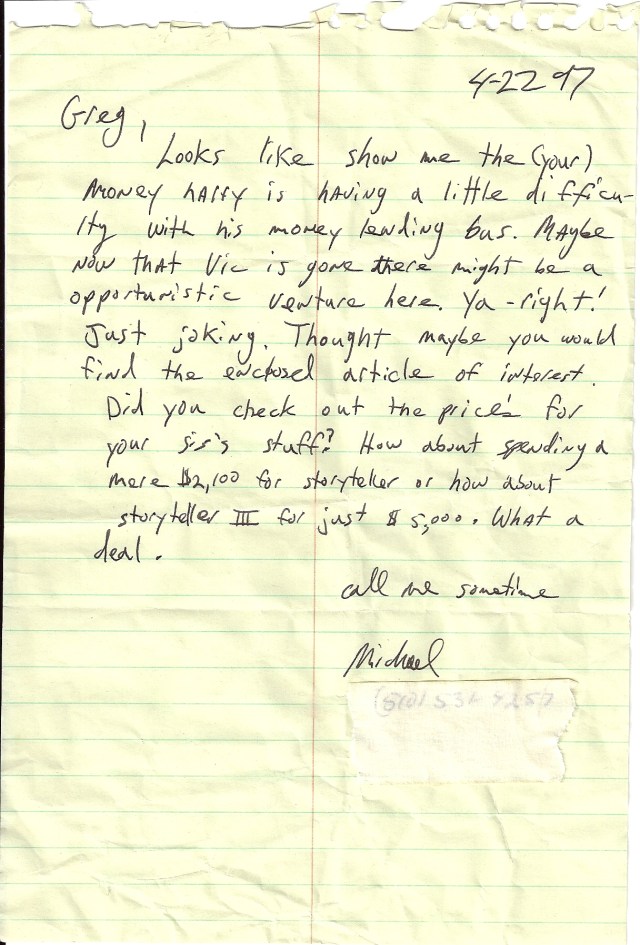 4-22 97
Greg,
Looks like show me the (your)
money harry is having a little difficu-
lty with his money lending bus. Maybe
now that Vic is gone there might be a
opportunistic venture here. Ya-right!
Just joking. Thought maybe you would
find the enclosed article of interest.
Did you check out the price's for
your sis's stuff? How about spending a
mere $2,100 for storyteller or how about
storyteller III for just $5,000. What a
deal.
call me sometime
Michael